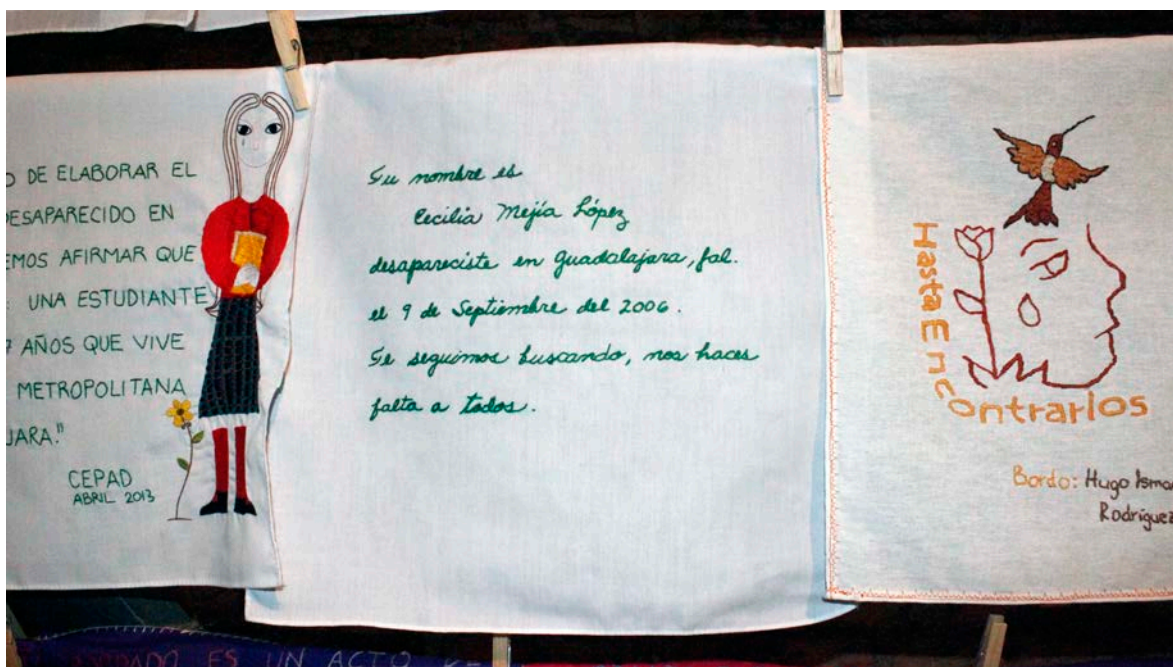 DE ELABORAR EL
DESAPARECIDO EN
EMOS AFIRMAR QUE
UNA ESTUDIANTE
AÑOS QUE VIVE
METROPOLITANA
JARA."
CEPAD
ABRIL 2013
Tu nombre es
Cecilia Mejía López
desapareciste en Guadalajara, Jal.
el 9 de Septiembre del 2006.
Te seguimos buscando, nos haces
falta a todos.
Hasta Encontrarlos
Bordo: Hugo Isma
Rodríguez
ES UN ACTO DE